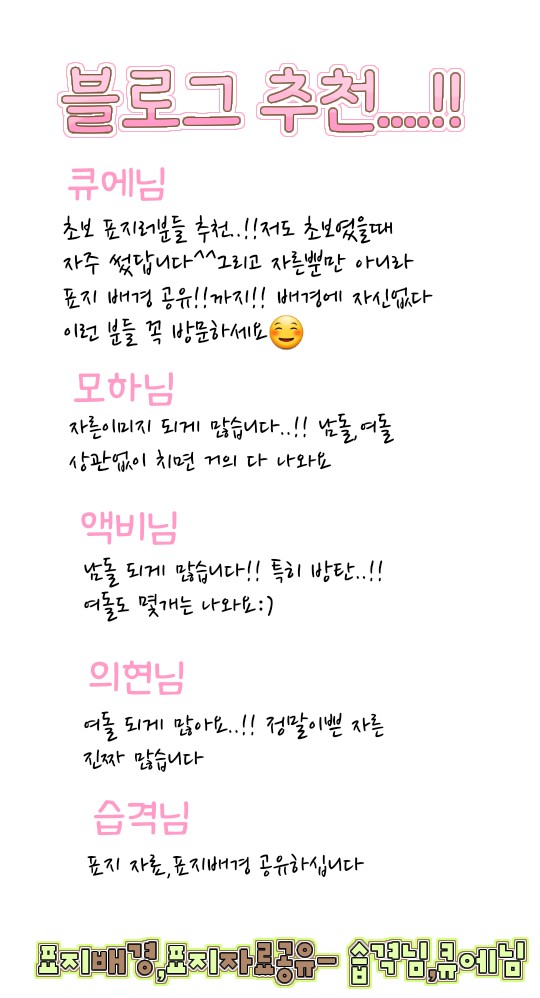 블로그 추천....!!
큐에님
초보 표지러분들 추천..!!저도 초보였을때
자주 썼답니다^^그리고 자른뿐만 아니라
표지 배경 공유!!까지!! 배경에 자신없다
이런 분들 꼭 방문하세요😊
모하님
자른이미지 되게 많습니다..!! 남돌,여돌
상관없이 치면 거의 다 나와요
액비님
남돌 되게 많습니다!! 특히 방탄..!!
여돌도 몇개는 나와요:)
의현님
여돌 되게 많아요..!! 정말이쁜 자른
진짜 많습니다
습격님
표지 자료,표지배경 공유하십니다
표지배경,표지자료공유- 습격님,큐에님